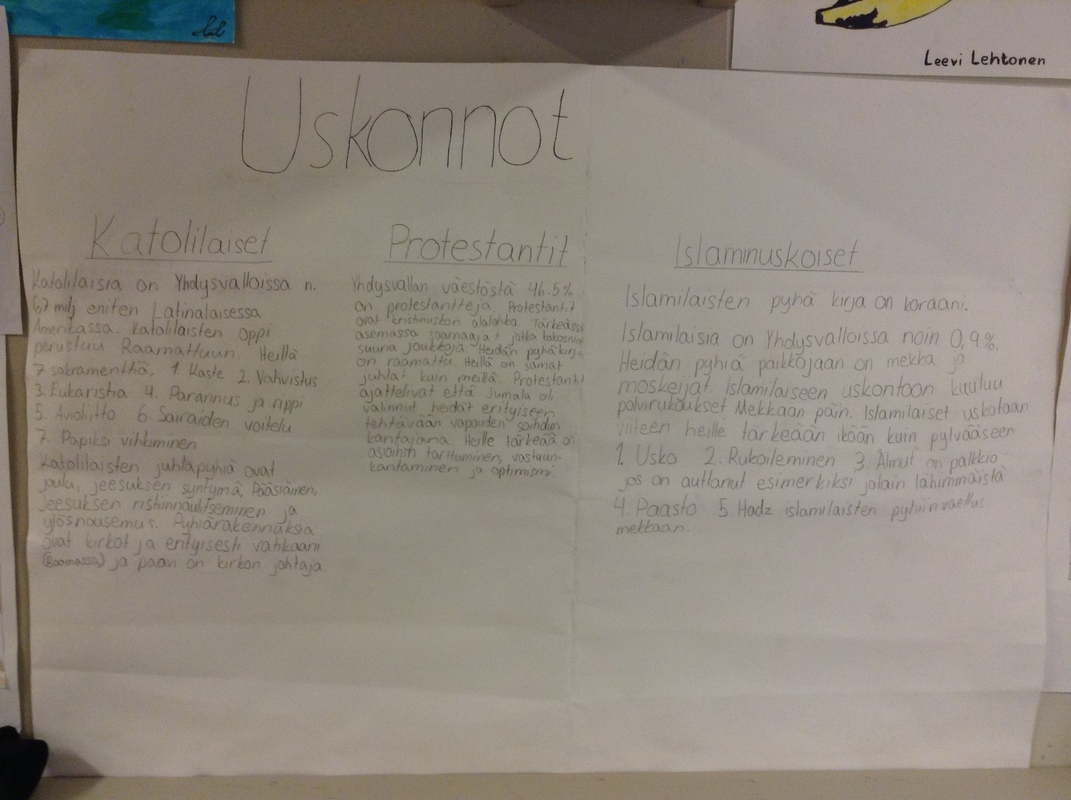 Leevi Lehtonen
Uskonnot
Katolilaiset
Katolilaisia on Yhdysvalloissa n.
67 milj eniten Latinalaisessa
Amerikassa. Katolilaisten oppi
perustuu Raamattuun. Heillä
7 sakramenttia, 1 Kaste 2. Vahvistus
3. Eukaristia 4. Parannus ja rippi
5. Avioliitto 6 Sairaiden voitelu
7. Papiksi vihkiminen
Katolilaisten juhlapyhiä ovat
joulu, jeesuksen syntymä, Pääsiäinen,
jeesuksen ristiinnaulitseminen ja
ylösnousemus. Pyhiärakennuksia
ovat kirkot ja erityisesti vatikaani
(Roomassa) ja paavi on kirkon johtaja.
Protestantit
Yhdysvallan väestöstä 46.5%
on protestantteja Protestantit
ovat kristinuskon alalahko. Tärkeässä
asemassa saarnaajat jotka kokoavat
suuria joukkoja Heidän pyhäkirja
on raamattu. Heillä on samat
juhlat kuin meillä. Protestantit
ajattelivat että Jumala oli
valinnut heidät erityiseen
tehtävään vapauden soihdun
kantajana. Heille tärkeää on
asioihin tarttuminen, vastuun-
kantaminen ja optimismi.
Islaminuskoiset
Islamilaisten pyhä kirja on koraani.
Islamilaisia on Yhdysvalloissa noin 0,9%.
Heidän pyhiä paikkojaan on mekka ja
moskeijat. Islamilaiseen uskontoon kuuluu
polvirukoukset Mekkaan päin. Islamilaiset uskotaan
viiteen heille tärkeään ikään kuin pylvääseen
1. Usko 2. Rukoileminen 3. Almut on palkkio
jos on auttanut esimerkiksi jotain lähimmäistä
4. Paasto 5. Hadz islamilaisten pyhiinvaellus
mekkaan.